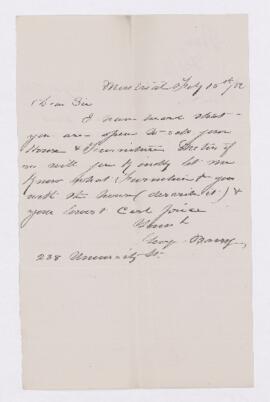 Montreal July 15th /82
Dear Sir
I have heard that
you are open to sell your
House & Furniture
so will you kindly let me
Know what Furniture & you
with the house (describe it) &
your lowest Cash price
Yours &
Geog. Barry
238 University St.